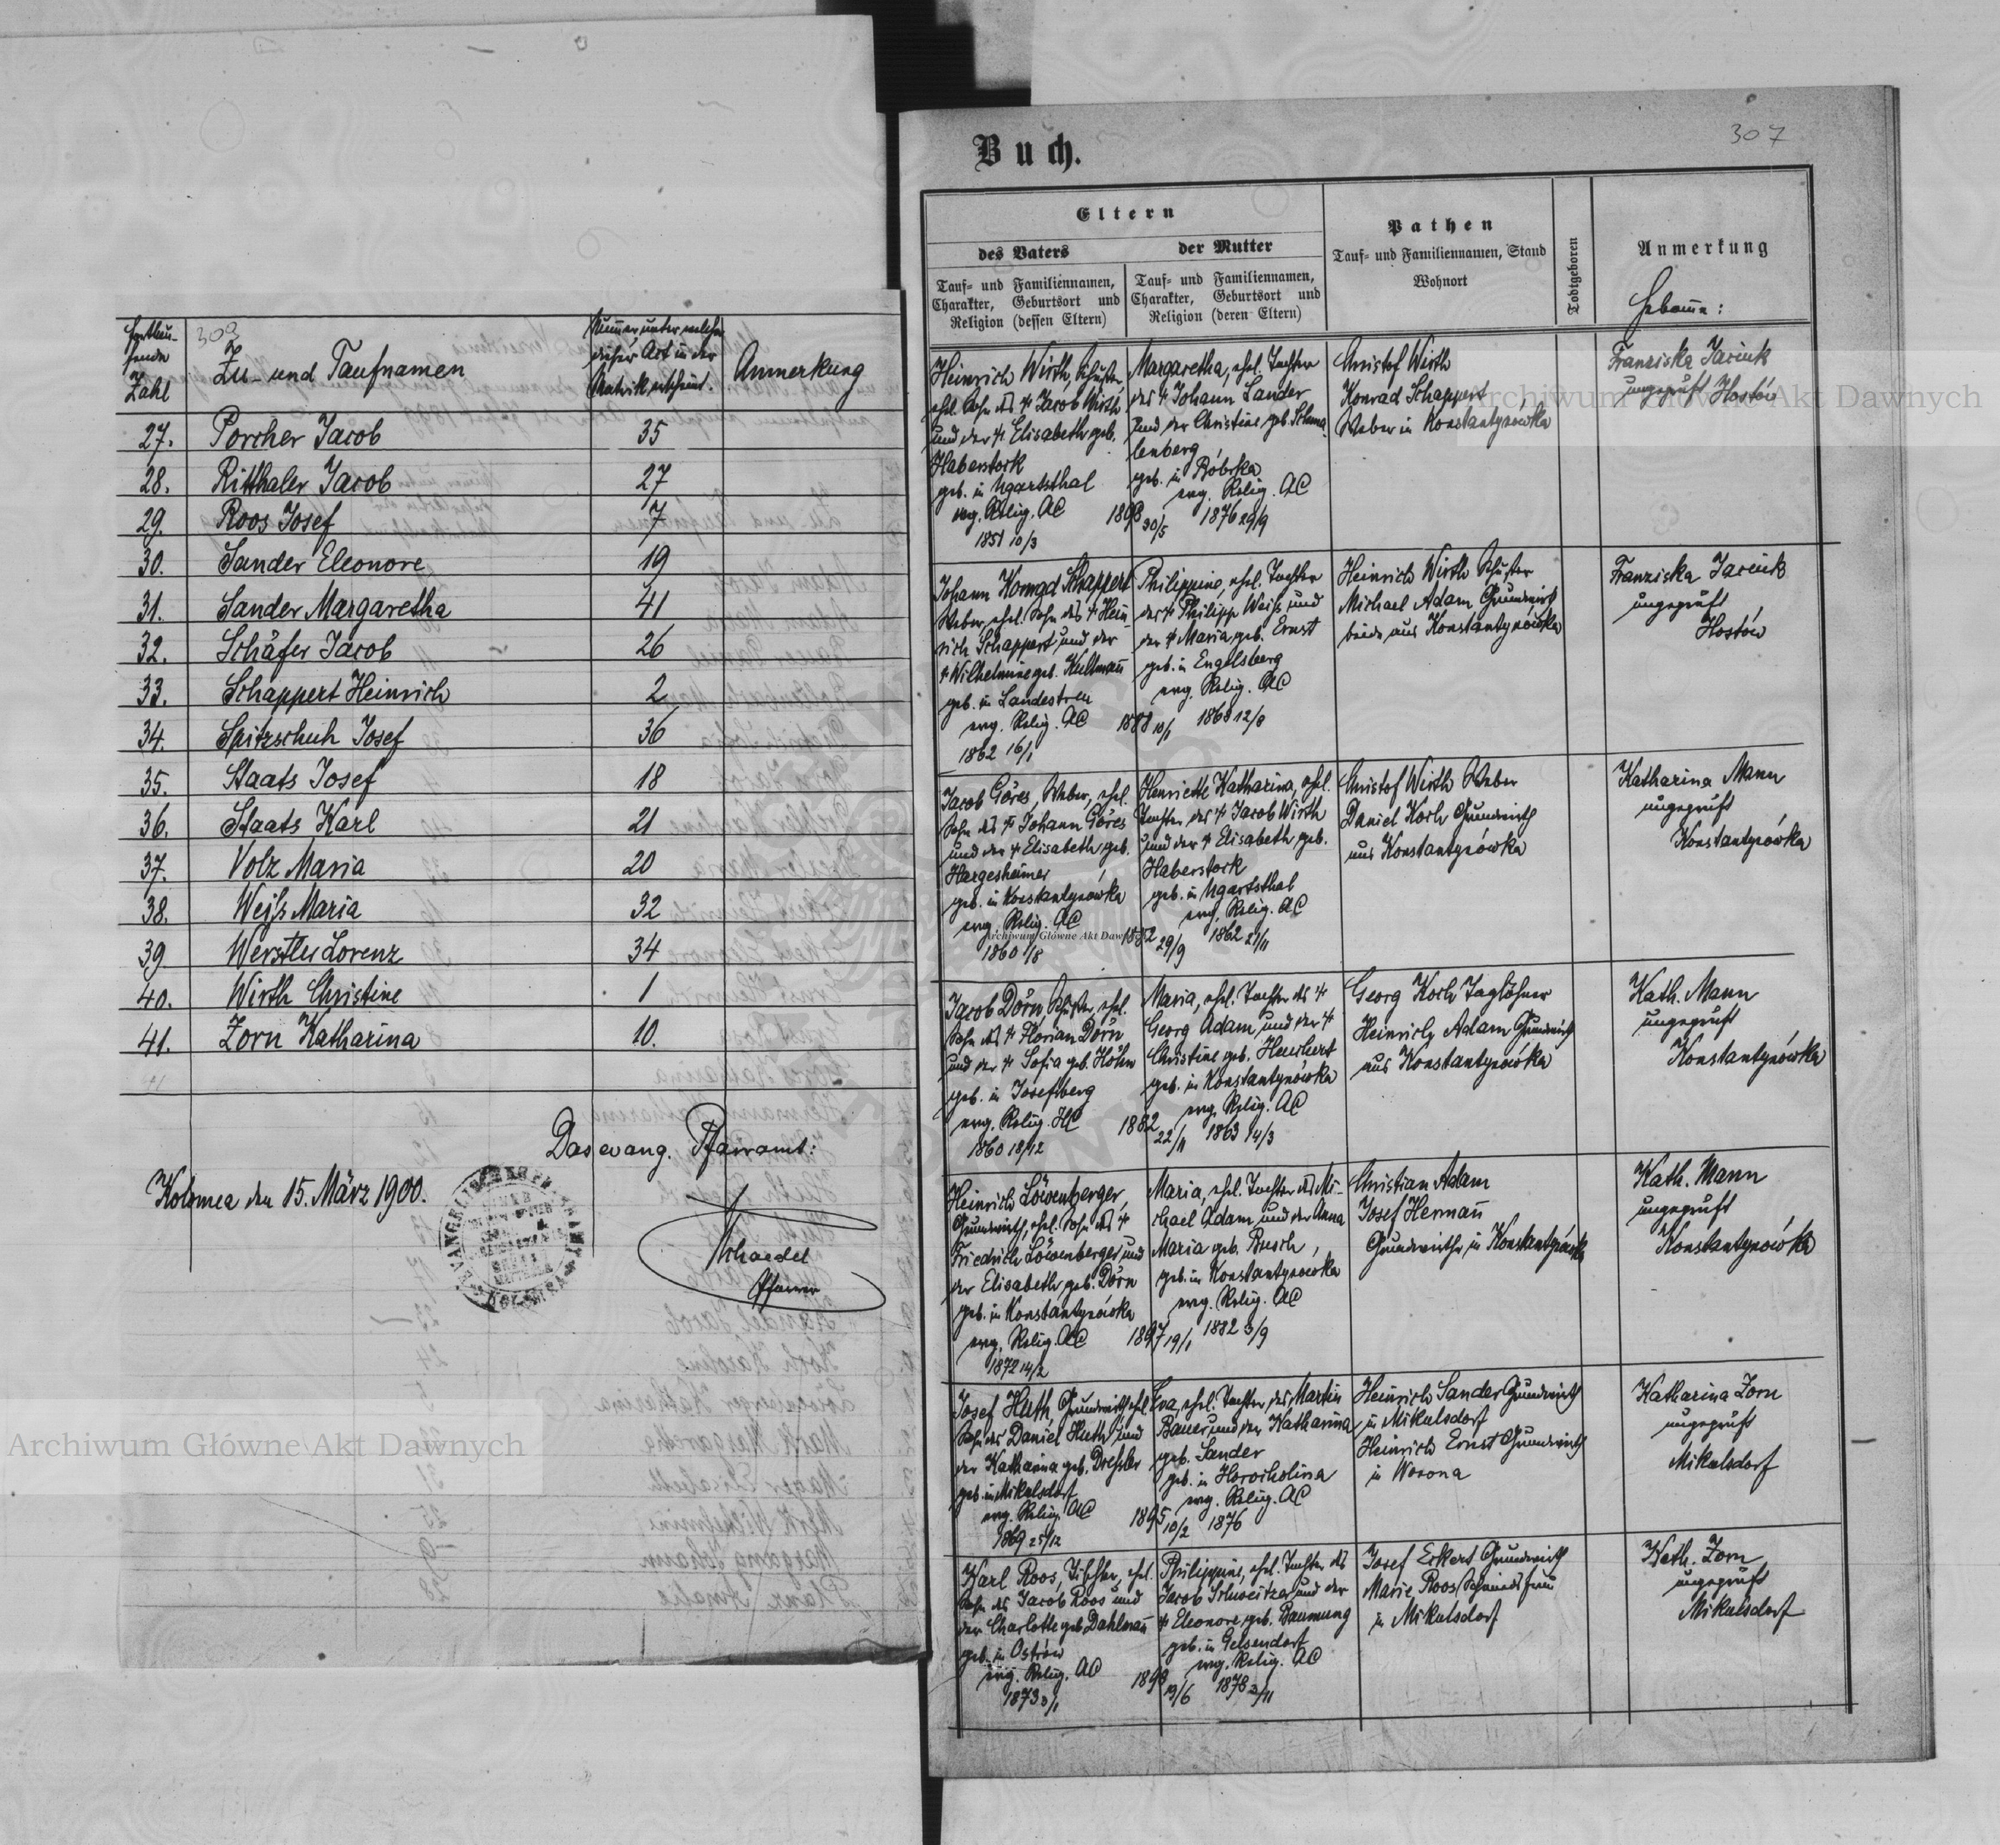 303
Fortlau-
fende
Zahl
Zu- und Taufnamen
Nummer unter welcher
dieser Act in der
Matrik erscheint.
Anmerkung
27. Porcher Jacob 35
28. Ritthaler Jacob 27
29. Roos Josef 7
30. Sander Eleonore 19
31. Sander Margaretha 41
32. Schäfer Jacob 26
33. Schappert Heinrich 2
34. Spitzschuh Josef 36
35. Staats Josef 18
36. Staats Karl 21
37. Volz Maria 20
38. Weiß Maria 32
39 Werstler Lorenz 34
40. Wirth Christine 1
41. Zorn Katharina 10.
Das evang. Pfarramt:
Kolomea den 15. März 1900.
Schaedel
Pfarrer
Archiwum Główne Akt Dawnych
307
Buch.
Eltern
des Vaters
Tauf- und Familiennamen,
Charakter, Geburtsort und
Religion (dessen Eltern)
der Mutter
Tauf- und Familiennamen,
Charakter, Geburtsort und
Religion (deren Eltern)
Pathen
Tauf- und Familiennamen, Stand
Wohnort
Todtgeboren
Anmerkung
Hebame:
Heinrich Wirth, Schuster,
ehel. Sohn des † Jacob Wirth
und der † Elisabeth geb.
Haberstock
geb. in Ugartsthal
evg. Relig. AC
1851 10/3
1898 30/5
Margaretha, ehel. Tochter
des † Johann Sander
und der Christine geb. Schma-
lenberg
geb. in Bóbrka
evg. Relig. AC
1876 29/9
Christof Wirth
Konrad Schappert
Weber in Konstantynówka
Franziska Jaciuk
ungeprüft Hostów
Johann Konrad Schappert
Weber, ehel. Sohn des † Hein
rich Schappert und der
† Wilhelmine geb. Kullmañ
geb. in Landestreu
evg. Relig. AC
1862 16/1
1888 10/1
Philippine, ehel. Tochter
des † Philipp Weiß und
der † Maria geb. Ernst
geb. in Engelsberg
evg. Relig. AC
1868 12/8
Heinrich Wirth Schuster
Michael Adam Grundwirth
beide aus Konstantynówka
Franziska Jaciuk
ungeprüft
Hostów
Jacob Göres, Weber, ehel.
Sohn des † Johann Göres
und der † Elisabeth geb.
Hargesheimer
geb. in Konstantynówka
evg. Relig. AC
1860 1/8
1882 29/9
Henriette Katharina, ehel.
Tochter des † Jacob Wirth
und der † Elisabeth geb.
Haberstock
geb. in Ugartsthal
evg. Relig. AC
1862 27/11
Christof Wirth Weber
Daniel Koch Grundwirth
aus Konstantynówka
Katharina Mann
ungeprüft
Konstantynówka
Archiwum Główne Akt Dawnych
Jacob Dörn, Schuster, ehel.
Sohn des † Florian Dörn
und der † Sofia geb. Höhn
geb. in Josefberg
evg. Relig. HC
1860 18/12
1882 22/11
Maria, ehel. Tochter des †
Georg Adam und der †
Christine geb. Heuchert
geb. in Konstantynówka
evg. Relig. AC
1863 14/3
Georg Koch Taglöhner
Heinrich Adam Grundwirth
aus Konstantynówka
Kath. Mann
ungeprüft
Konstantynówka
Heinrich Löwenberger,
Grundwirth, ehel. Sohn des †
Friedrich Löwenberger und
der Elisabeth geb. Dörn
geb. in Konstantynówka
evg. Relig. AC
1872 14/2
1897 19/1
Maria, ehel. Tochter des Mi-
chael Adam und der Anna
Maria geb. Busch,
geb. in Konstantynówka
evg. Relig. AC
1882 3/9
Christian Adam
Josef Hermañ
Grundwirthe in Konstantynówka
Kath. Mann
ungeprüft
Konstantynówka
Josef Huth, Grundwirth ehel.
Sohn des Daniel Huth und
der Katharina geb. Dreßler
geb. in Mikulsdorf
evg. Relig. AC
1869 25/12
1895 10/2
Eva, ehel. Tochter des Martin
Bauer und der Katharina
geb. Sander
geb. in Horocholina
evg. Relig. AC
1876
Heinrich Sander Grundwirth
in Mikulsdorf
Heinrich Ernst Grundwirth
in Worona
Katharina Zorn
ungeprüft
Mikulsdorf
Karl Roos, Tischler, ehel.
Sohn des Jacob Roos und
der Charlotte geb. Dahlmañ
geb. in Ostrów
evg. Relig. AC
1873 3/1
1898 19/6
Philippine, ehel. Tochter des
Jacob Schweitzer und der
† Eleonore geb. Baumung
geb. in Gelsendorf
evg. Relig. AC
1878 3/11
Josef Eckert Grundwirth
Marie Roos Schmiedsfrau
in Mikulsdorf
Kath. Zorn
ungeprüft
Mikulsdorf
Archiwum Główne Akt Dawnych